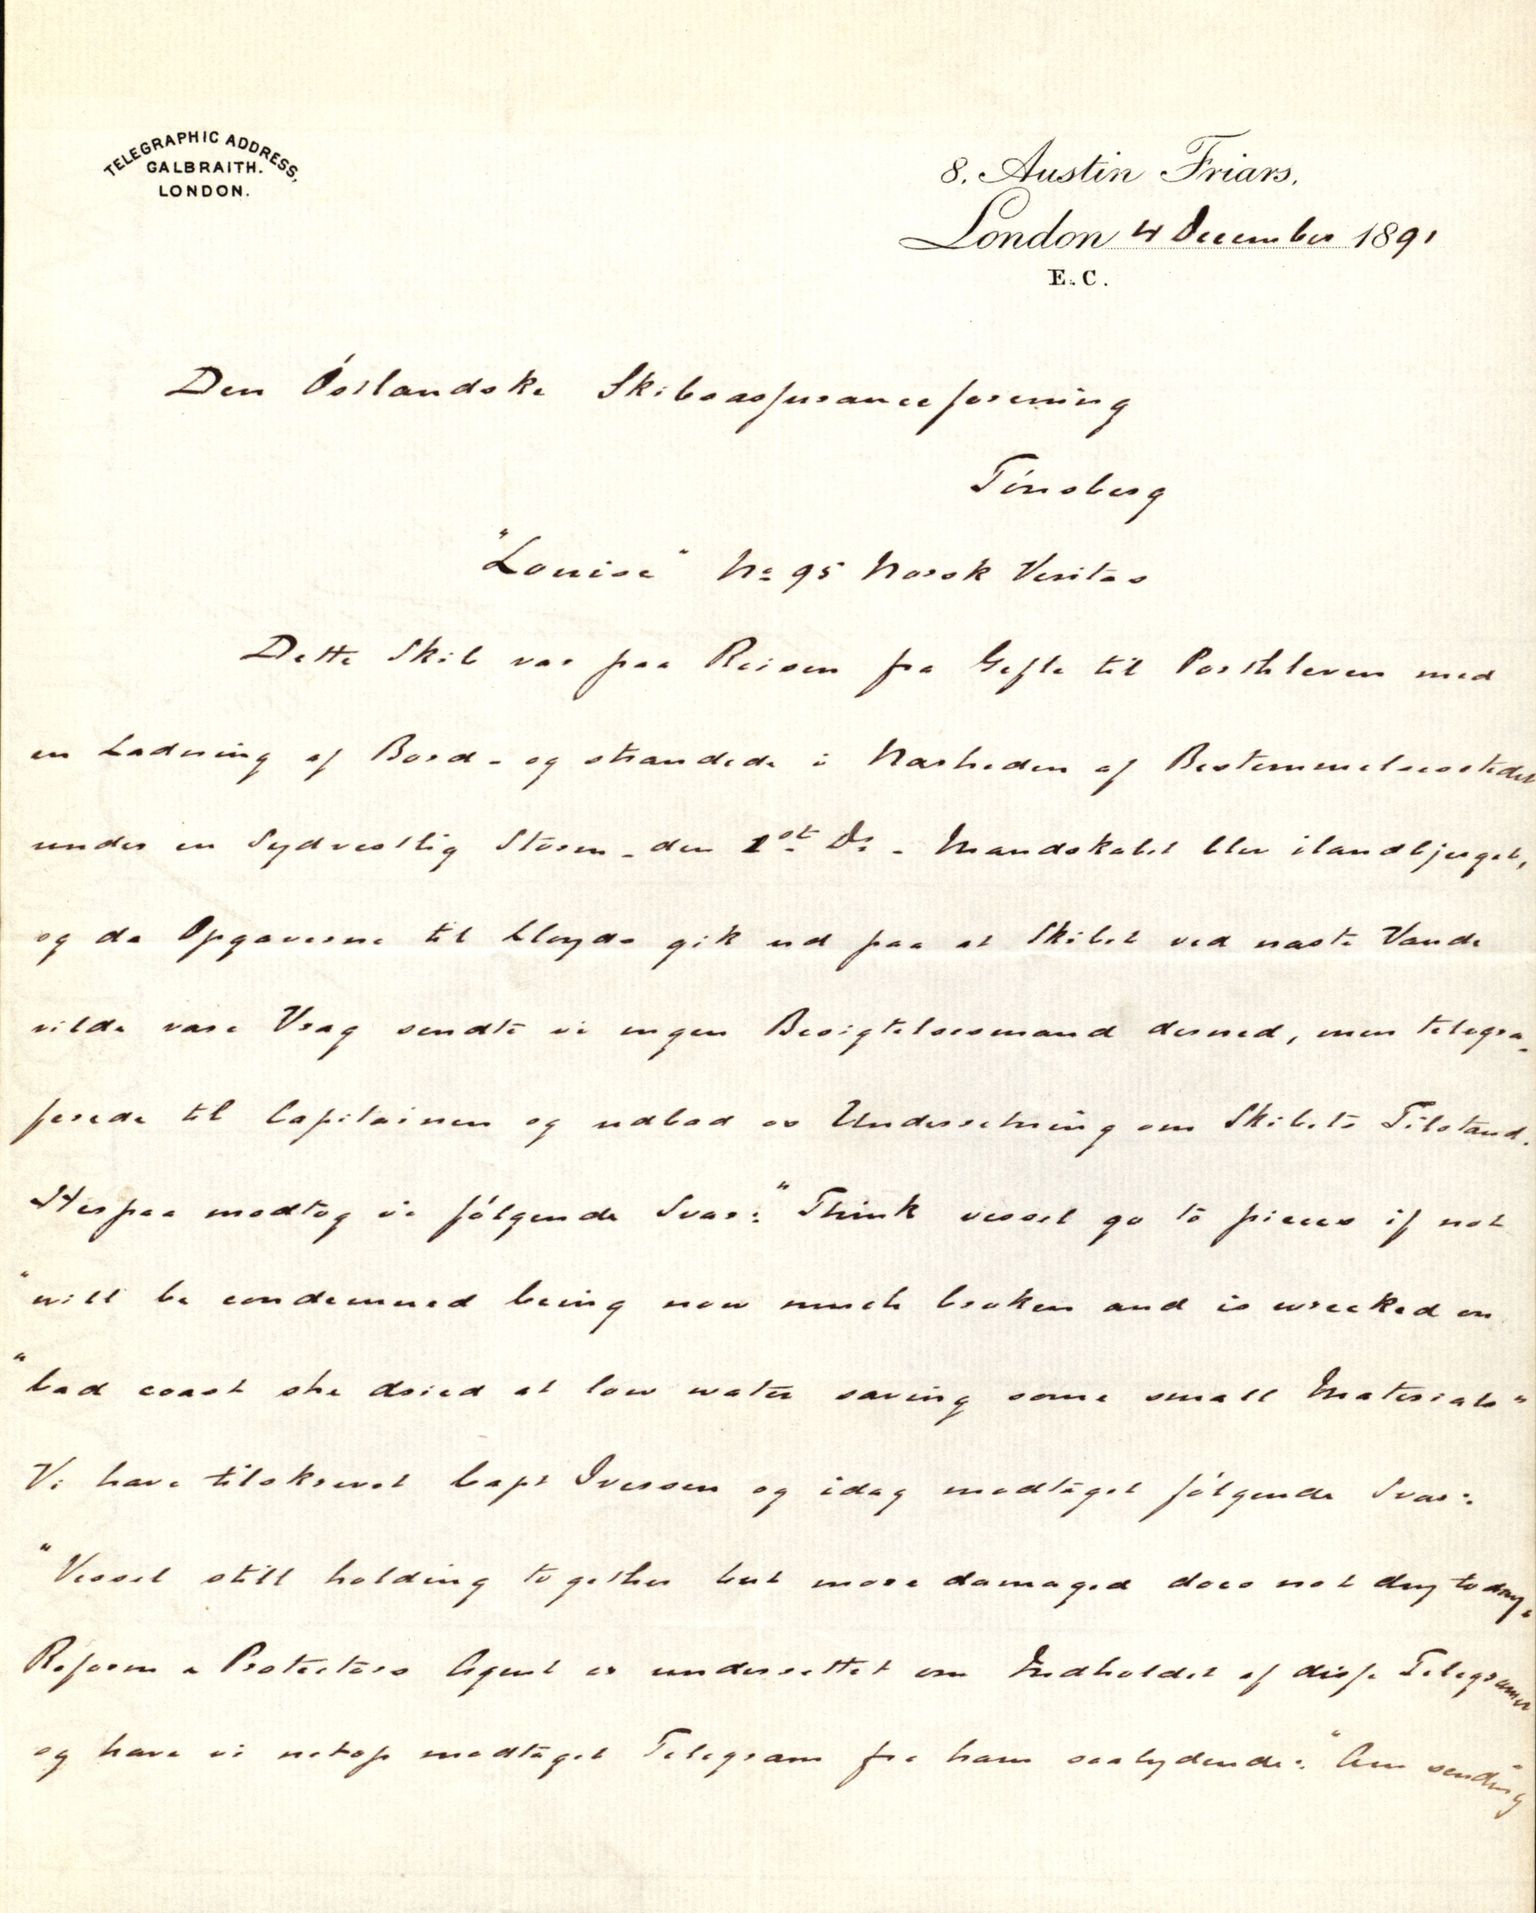 TELEGRAPHIC ADDRESS,
GALBRAITH.
LONDON.
8. Austin Friars.
London 4 December 1891
E.C.
Den Óstlandske Skibsassuranceforening
Tónsberg
"Louise" No 95 Norsk Veritas
Dette Skib var paa Reisen fra Gefle til Porthleven med
en Ladning af Bord - og strandede i Nærheden af Bestemmelsesstedet
under en Sydvestlig Storm - den 1st Ds. - Mandskabet blev ilandbjerget,
og da Opgaverne til Lloyds gik ud paa at Skibet ved næste Vande
vilde være Vrag sendte vi ingen Besigtelsesmand derned, men telegra-
ferede til Capitainen og udbad os Underretning om Skibets Tilstand.
Herpaa modtog vi fólgende Svar: "Think vessel go to pieces if not
"will be condemned being now much broken and is wrecked on
"bad coast she dried at low water saving some small Materials"
Vi have tilskrevet Capt Iversen og idag modtaget fólgende Svar:
"Vessel still holding together but more damaged does not dry today.
Reform & Protectors Agent er underrettet om Indholdet af disse Telegramer
og have vi netop modtaget Telegram fra ham saalydende: "Am sending